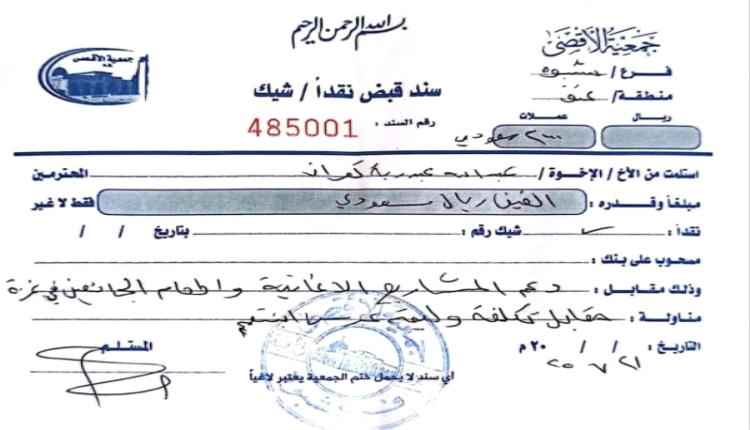 بسم الله الرحمن الرحيم
جمعية الأقصى
جمعية الأقصى
فرع / شبوه
منطقة / عتق
سند قبض نقداً / شيك
رقم السند : 485001
ريال
عملات
٢٠٠٠ سعودي
استلمت من الأخ / الإخوة / عبدالله عبدربه المحترمين
مبلغاً وقدره : الفين ريال سعودي فقط لا غير
نقداً : ✓ شيك رقم : بتاريخ / /
مسحوب على بنك :
وذلك مقابل : دعم المشاريع الاغاثية واطعام الجائعين في غزة
مناولة : مقابل تكلفة وليمة عرس ابنتهم
التاريخ : / / ٢٠ م
٢١ ٧ ٢٥
المستلم
أي سند لا يحمل ختم الجمعية يعتبر لاغياً